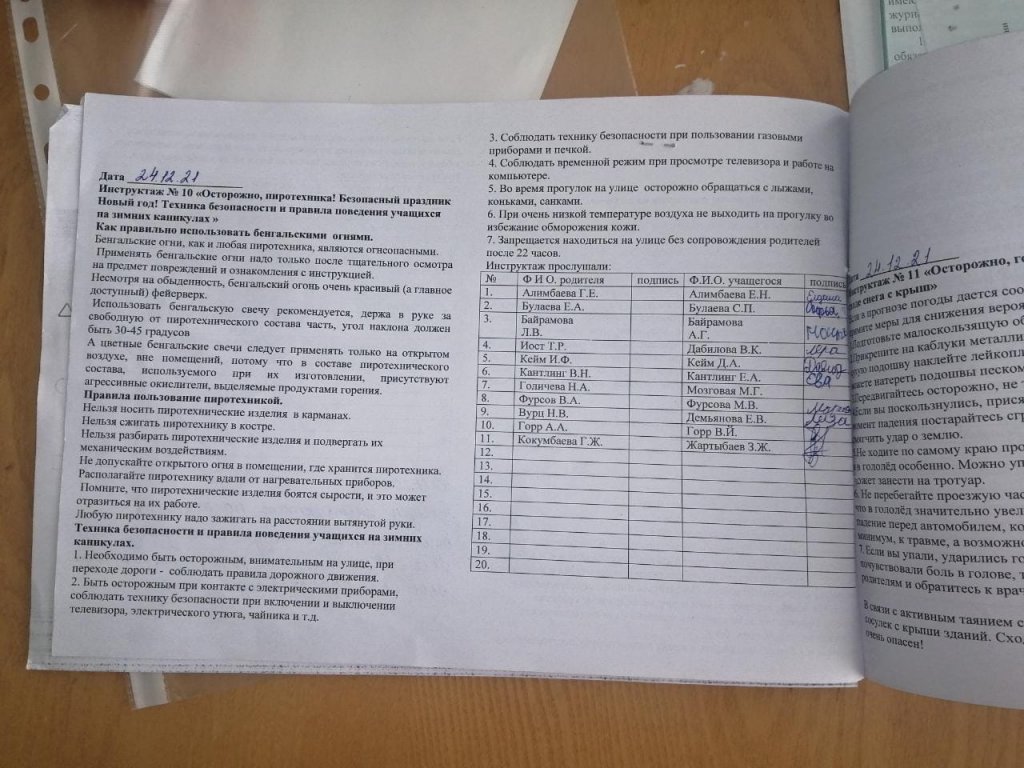 Дата 24.12.21
Инструктаж № 10 «Осторожно, пиротехника! Безопасный праздник
Новый год! Техника безопасности и правила поведения учащихся
на зимних каникулах »
Как правильно использовать бенгальскими огнями.
Бенгальские огни, как и любая пиротехника, являются огнеопасными.
Применять бенгальские огни надо только после тщательного осмотра
на предмет повреждений и ознакомления с инструкцией.
Несмотря на обыденность, бенгальский огонь очень красивый (а главное
доступный) фейерверк.
Использовать бенгальскую свечу рекомендуется, держа в руке за
свободную от пиротехнического состава часть, угол наклона должен
быть 30-45 градусов
А цветные бенгальские свечи следует применять только на открытом
воздухе, вне помещений, потому что в составе пиротехнического
состава, используемого при их изготовлении, присутствуют
агрессивные окислители, выделяемые продуктами горения.
Правила пользование пиротехникой.
Нельзя носить пиротехнические изделия в карманах.
Нельзя сжигать пиротехнику в костре.
Нельзя разбирать пиротехнические изделия и подвергать их
механическим воздействиям.
Не допускайте открытого огня в помещении, где хранится пиротехника.
Располагайте пиротехнику вдали от нагревательных приборов.
Помните, что пиротехнические изделия боятся сырости, и это может
отразиться на их работе.
Любую пиротехнику надо зажигать на расстоянии вытянутой руки.
Техника безопасности и правила поведения учащихся на зимних
каникулах.
1. Необходимо быть осторожным, внимательным на улице, при
переходе дороги - соблюдать правила дорожного движения.
2. Быть осторожным при контакте с электрическими приборами,
соблюдать технику безопасности при включении и выключении
телевизора, электрического утюга, чайника и т.д.
3. Соблюдать технику безопасности при пользовании газовыми
приборами и печкой.
4. Соблюдать временной режим при просмотре телевизора и работе на
компьютере.
5. Во время прогулок на улице осторожно обращаться с лыжами,
коньками, санками.
6. При очень низкой температуре воздуха не выходить на прогулку во
избежание обморожения кожи.
7. Запрещается находиться на улице без сопровождения родителей
после 22 часов.
Инструктаж прослушали:
№ Ф И О. родителя подпись Ф.И.О. учащегося подпись
1. Алимбаева Г.Е. Алимбаева Е.Н.
2. Булаева Е.А. Булаева С.П.
3. Байрамова Байрамова
Л.В. А.Г.
4. Иост Т.Р. Дабилова В.К.
5. Кейм И.Ф. Кейм Д.А.
6. Кантлинг В.Н. Кантлинг Е.А. Ева
7. Голичева Н.А. Мозговая М.Г.
8. Фурсов В.А. Фурсова М.В.
9. Вурц Н.В. Демьянова Е.В. Лиза
10. Горр А.А. Горр В.Й.
11. Кокумбаева Г.Ж. Жартыбаев З.Ж.
12.
13.
14.
15.
16.
17.
18.
19.
20.
24.12.21
№ 11 «Осторожно, го
снега с крыш»
в прогнозе погоды дается соо
меры для снижения вероя
малоскользящую об
на каблуки металли
подошву наклейте лейкопл
натереть подошвы песком
осторожно, не
вы поскользнулись, прися
падения постарайтесь сгр
удар о землю.
Не ходите по самому краю про
в гололёд особенно. Можно уп
занести на тротуар.
Не перебегайте проезжую час
что в гололёд значительно увел
падение перед автомобилем, ко
минимум, к травме, а возможно
7. Если вы упали, ударились го
почувствовали боль в голове, т
родителям и обратитесь к врач
В связи с активным таянием с
сосулек с крыши зданий. Схо
очень опасен!